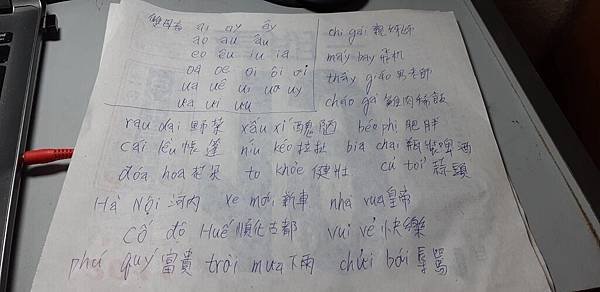 雙母音 ai ay ây
ao au âu
eo êu iu ia
oa oe oi ôi ơi
ua uê ui uơ uy
ưa ưi ưu
chị gái 親姊姊
máy bay 飛机
thầy giáo 男老師
cháo gà 雞肉稀飯
rau dại 野菜 xấu xí 醜陋 béo phì 肥胖
cái lều 帳蓬 níu kéo 拉扯 bia chai 瓶裝啤酒
đóa hoa 花朵 to khỏe 健壯 củ tỏi 蒜頭
Hà Nội 河內 xe mới 新車 nhà vua 皇帝
cố đô Huế 順化古都 vui vẻ 快樂
phú quý 富貴 trời mưa 下雨 chửi bới 辱罵